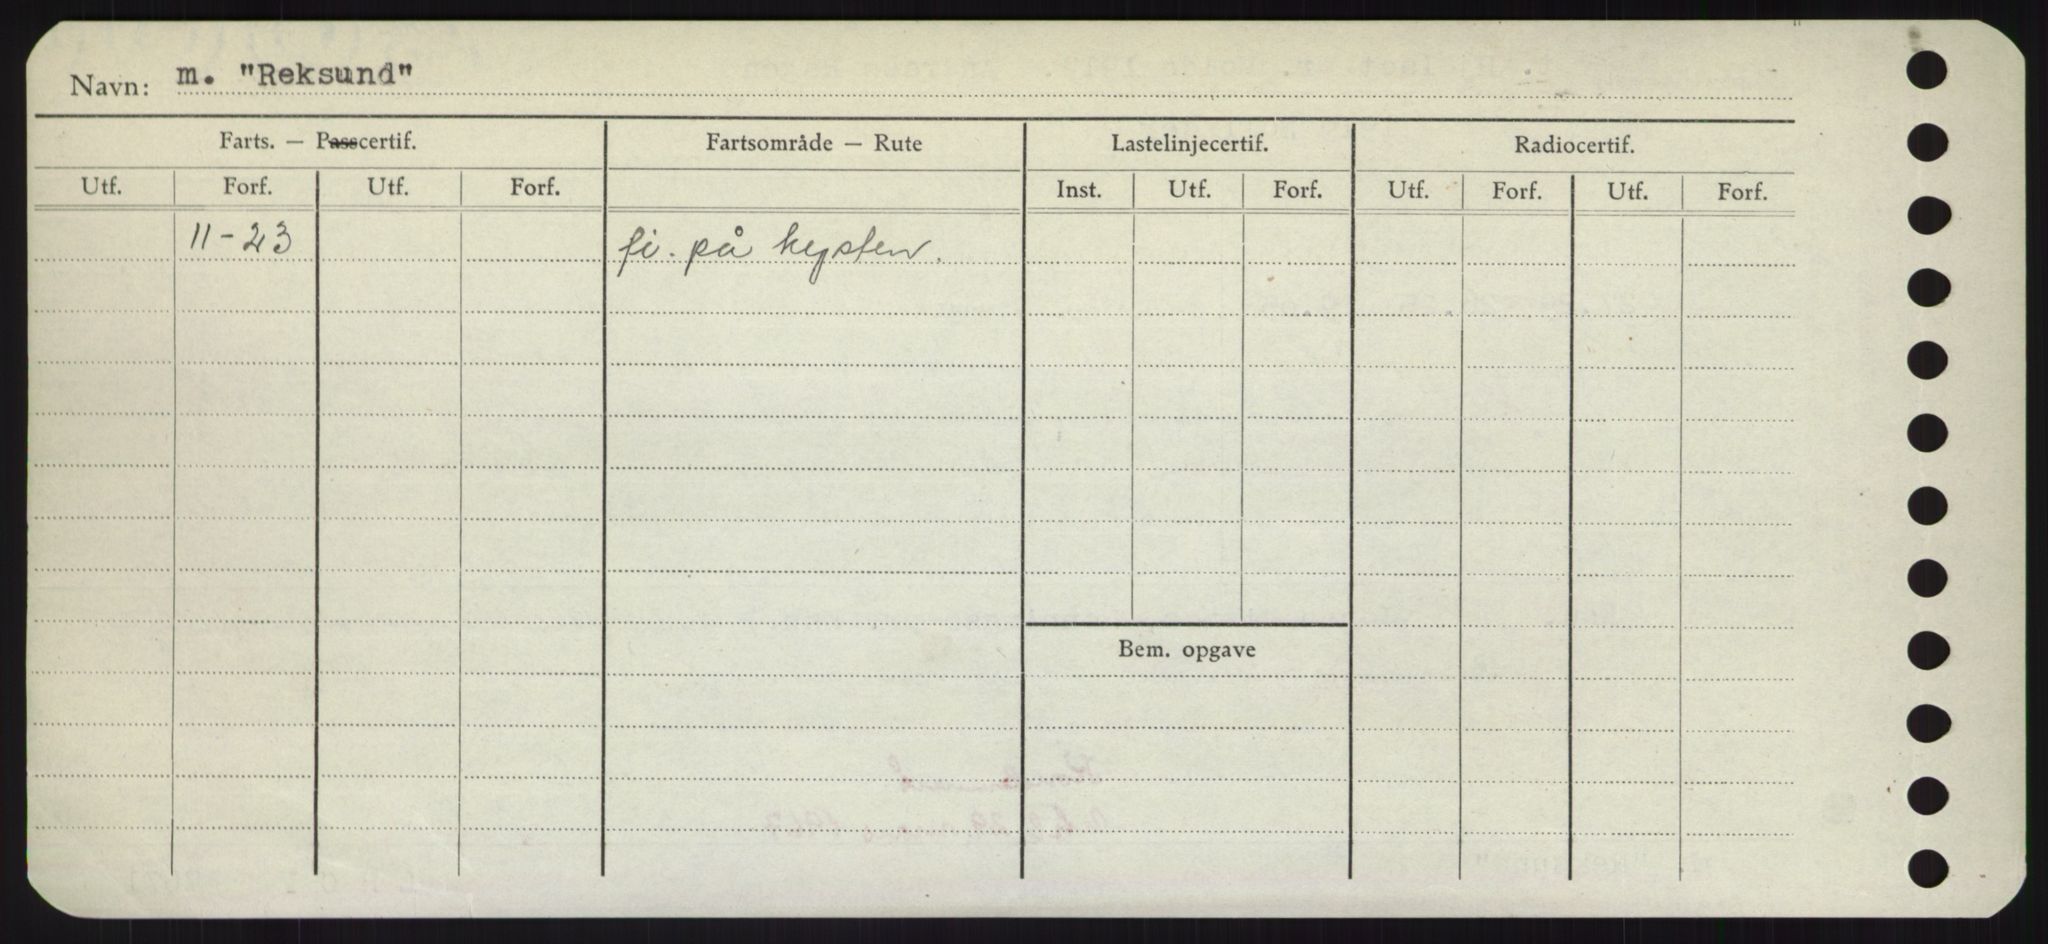 Navn: m. "Reksund"
Farts. — Passcertif. Fartsområde — Rute Lastelinjecertif. Radiocertif.
Utf. Forf. Utf. Forf. Inst. Utf. Forf. Utf. Forf. Utf. Forf.
11-23 fi. på kysten.
Bem. opgave